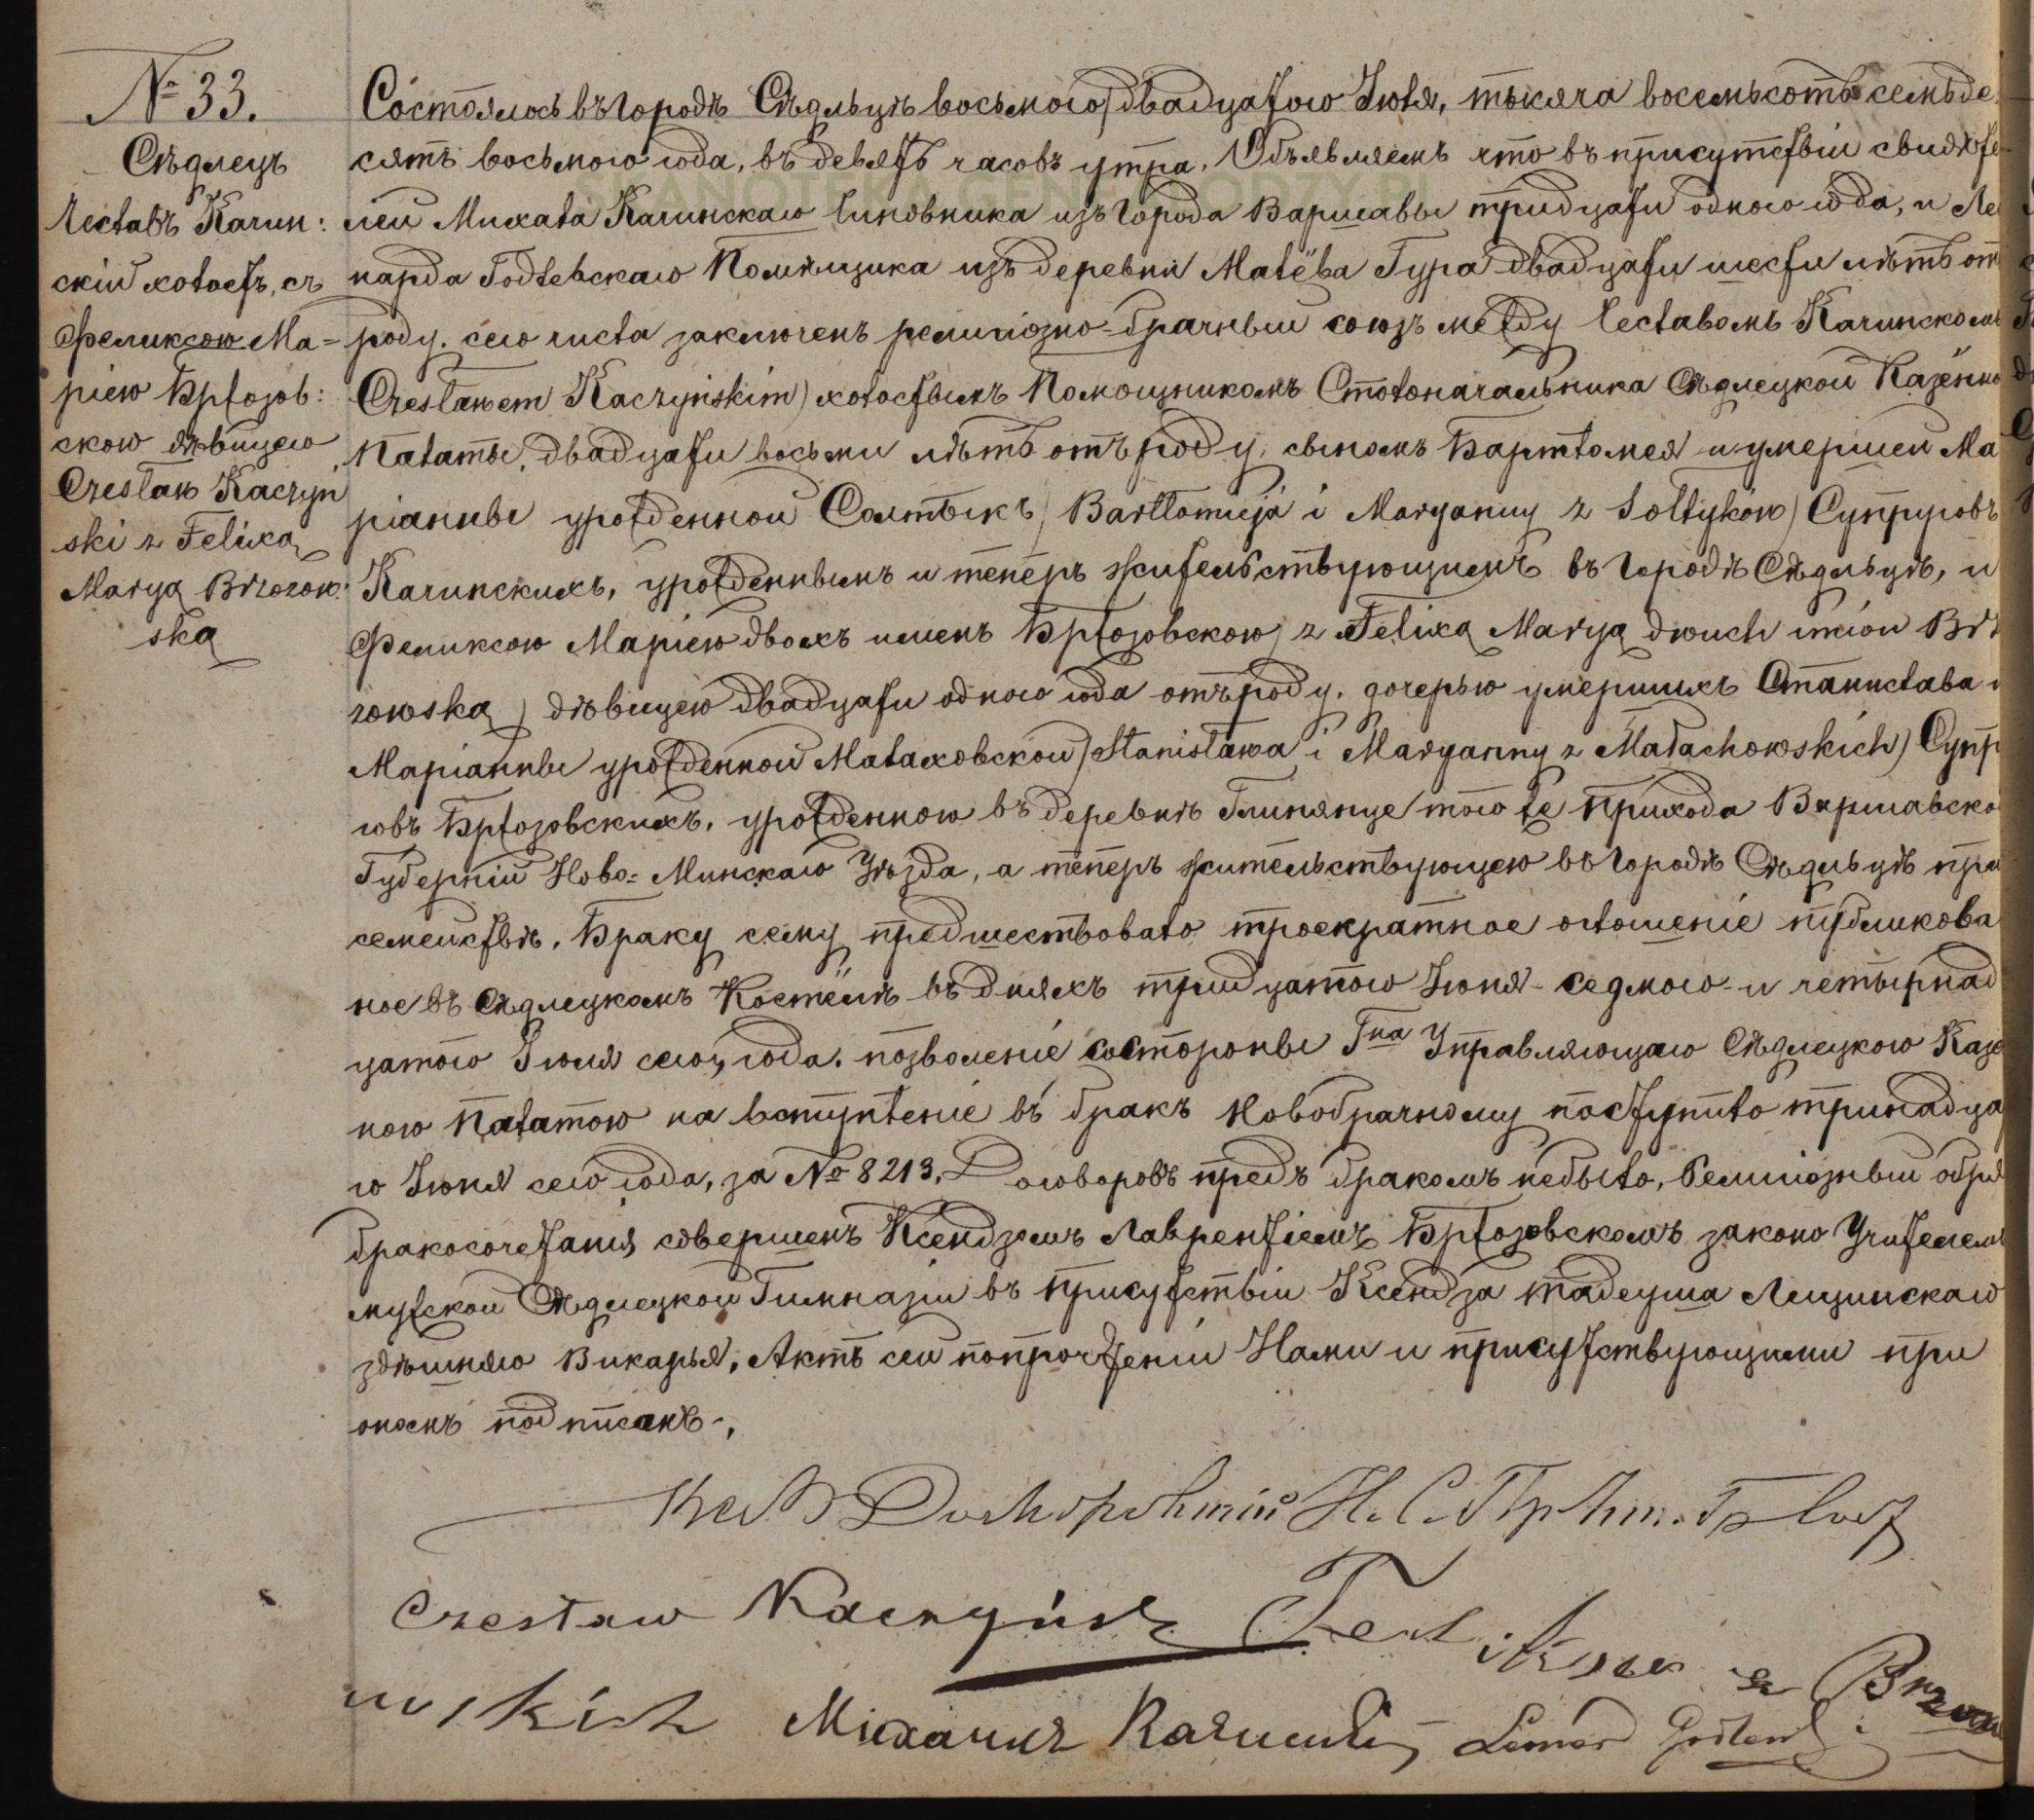 № 33.
Сѣдлецъ
Чеславъ Качин:
скій холостъ, съ
Феликсою Ма-
ріею Бржозов:
скою дѣвицею
Czesław Kaczyń
ski z Felixą
Maryą Brzozow:
ską
Состоялось въ городѣ Сѣдльцѣ восьмого/двадцатого Іюля, тысяча восемьсотъ семьде
сятъ восьмого года, въ девять часовъ утра. Объявляемъ что въ присутствіи свидѣте
лей Михала Качинскаго Чиновника изъ города Варшавы тридцати одного года, и Лео
нарда Годлевскаго Помѣщика изъ деревни Малёва Гура двадцати шести лѣтъ отъ
роду. сего числа заключенъ религіозно-брачный союзъ между Чеславомъ Качинскомъ
Czesławem Kaczyńskim) холостымъ Помощникомъ Столоначальника Сѣдлецкой Казённо
Палаты, двадцати восьми лѣтъ отъ роду, сыномъ Бартломея и умершей Ма
ріанны урожденной Солтыкъ) Bartłomieja i Maryanny z Sołtyków) Супруговъ
Качинскихъ, урожденнымъ и теперь жительствующимъ въ городѣ Сѣдльцѣ, и
Феликсою Маріею двохъ именъ Бржозовскою) z Felixą Maryą dwuch imion Brz
zowską) дѣвицею двадцати одного года отъ роду. дочерью умершихъ Станислава и
Маріанны урожденной Малаховской) Stanisława i Maryanny z Małachowskich) Супр
говъ Бржозовскихъ, урожденною въ деревнѣ Глинянце того же Прихода Варшавско
Губерніи Ново-Минскаго Уѣзда, а теперь жительствующею въ городѣ Сѣдльцѣ при
семействѣ. Браку сему предшествовало троекратное оглошеніе публикова
ное въ Сѣдлецкомъ Костёлѣ въ дняхъ тридцатого Іюня - седмого - и четырнад
цатого Іюля сего, года. позволеніе состороны Гна Управляющаго Сѣдлецкою Казе
ною Палатою на вступленіе въ бракъ новобрачному поступило тринадца
го Іюня сего года, за № 8213. Договоровъ предъ бракомъ небыло, Религіозный обря
бракосочетанія совершенъ Ксендзомъ Лаврентіемъ Бржозовскомъ законо Учителемъ
мужской Сѣдлецкой Гимназіи въ присутствіи Ксендза Тадеуша Лещинскаго
здѣшняго Викарья. Актъ сей попрочтеніи Нами и присутствующими при
ономъ подписанъ.
Czesław Kaczyński
Михаилъ Качинскій